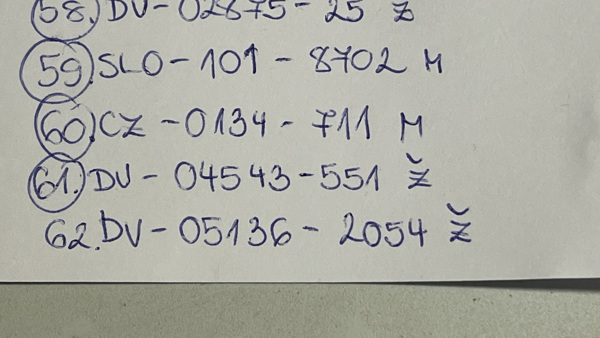 58. DV - 02875 - 25 Ž
59. SLO - 101 - 8702 M
60. CZ - 0134 - 711 M
61. DV - 04543 - 551 Ž
62. DV - 05136 - 2054 Ž